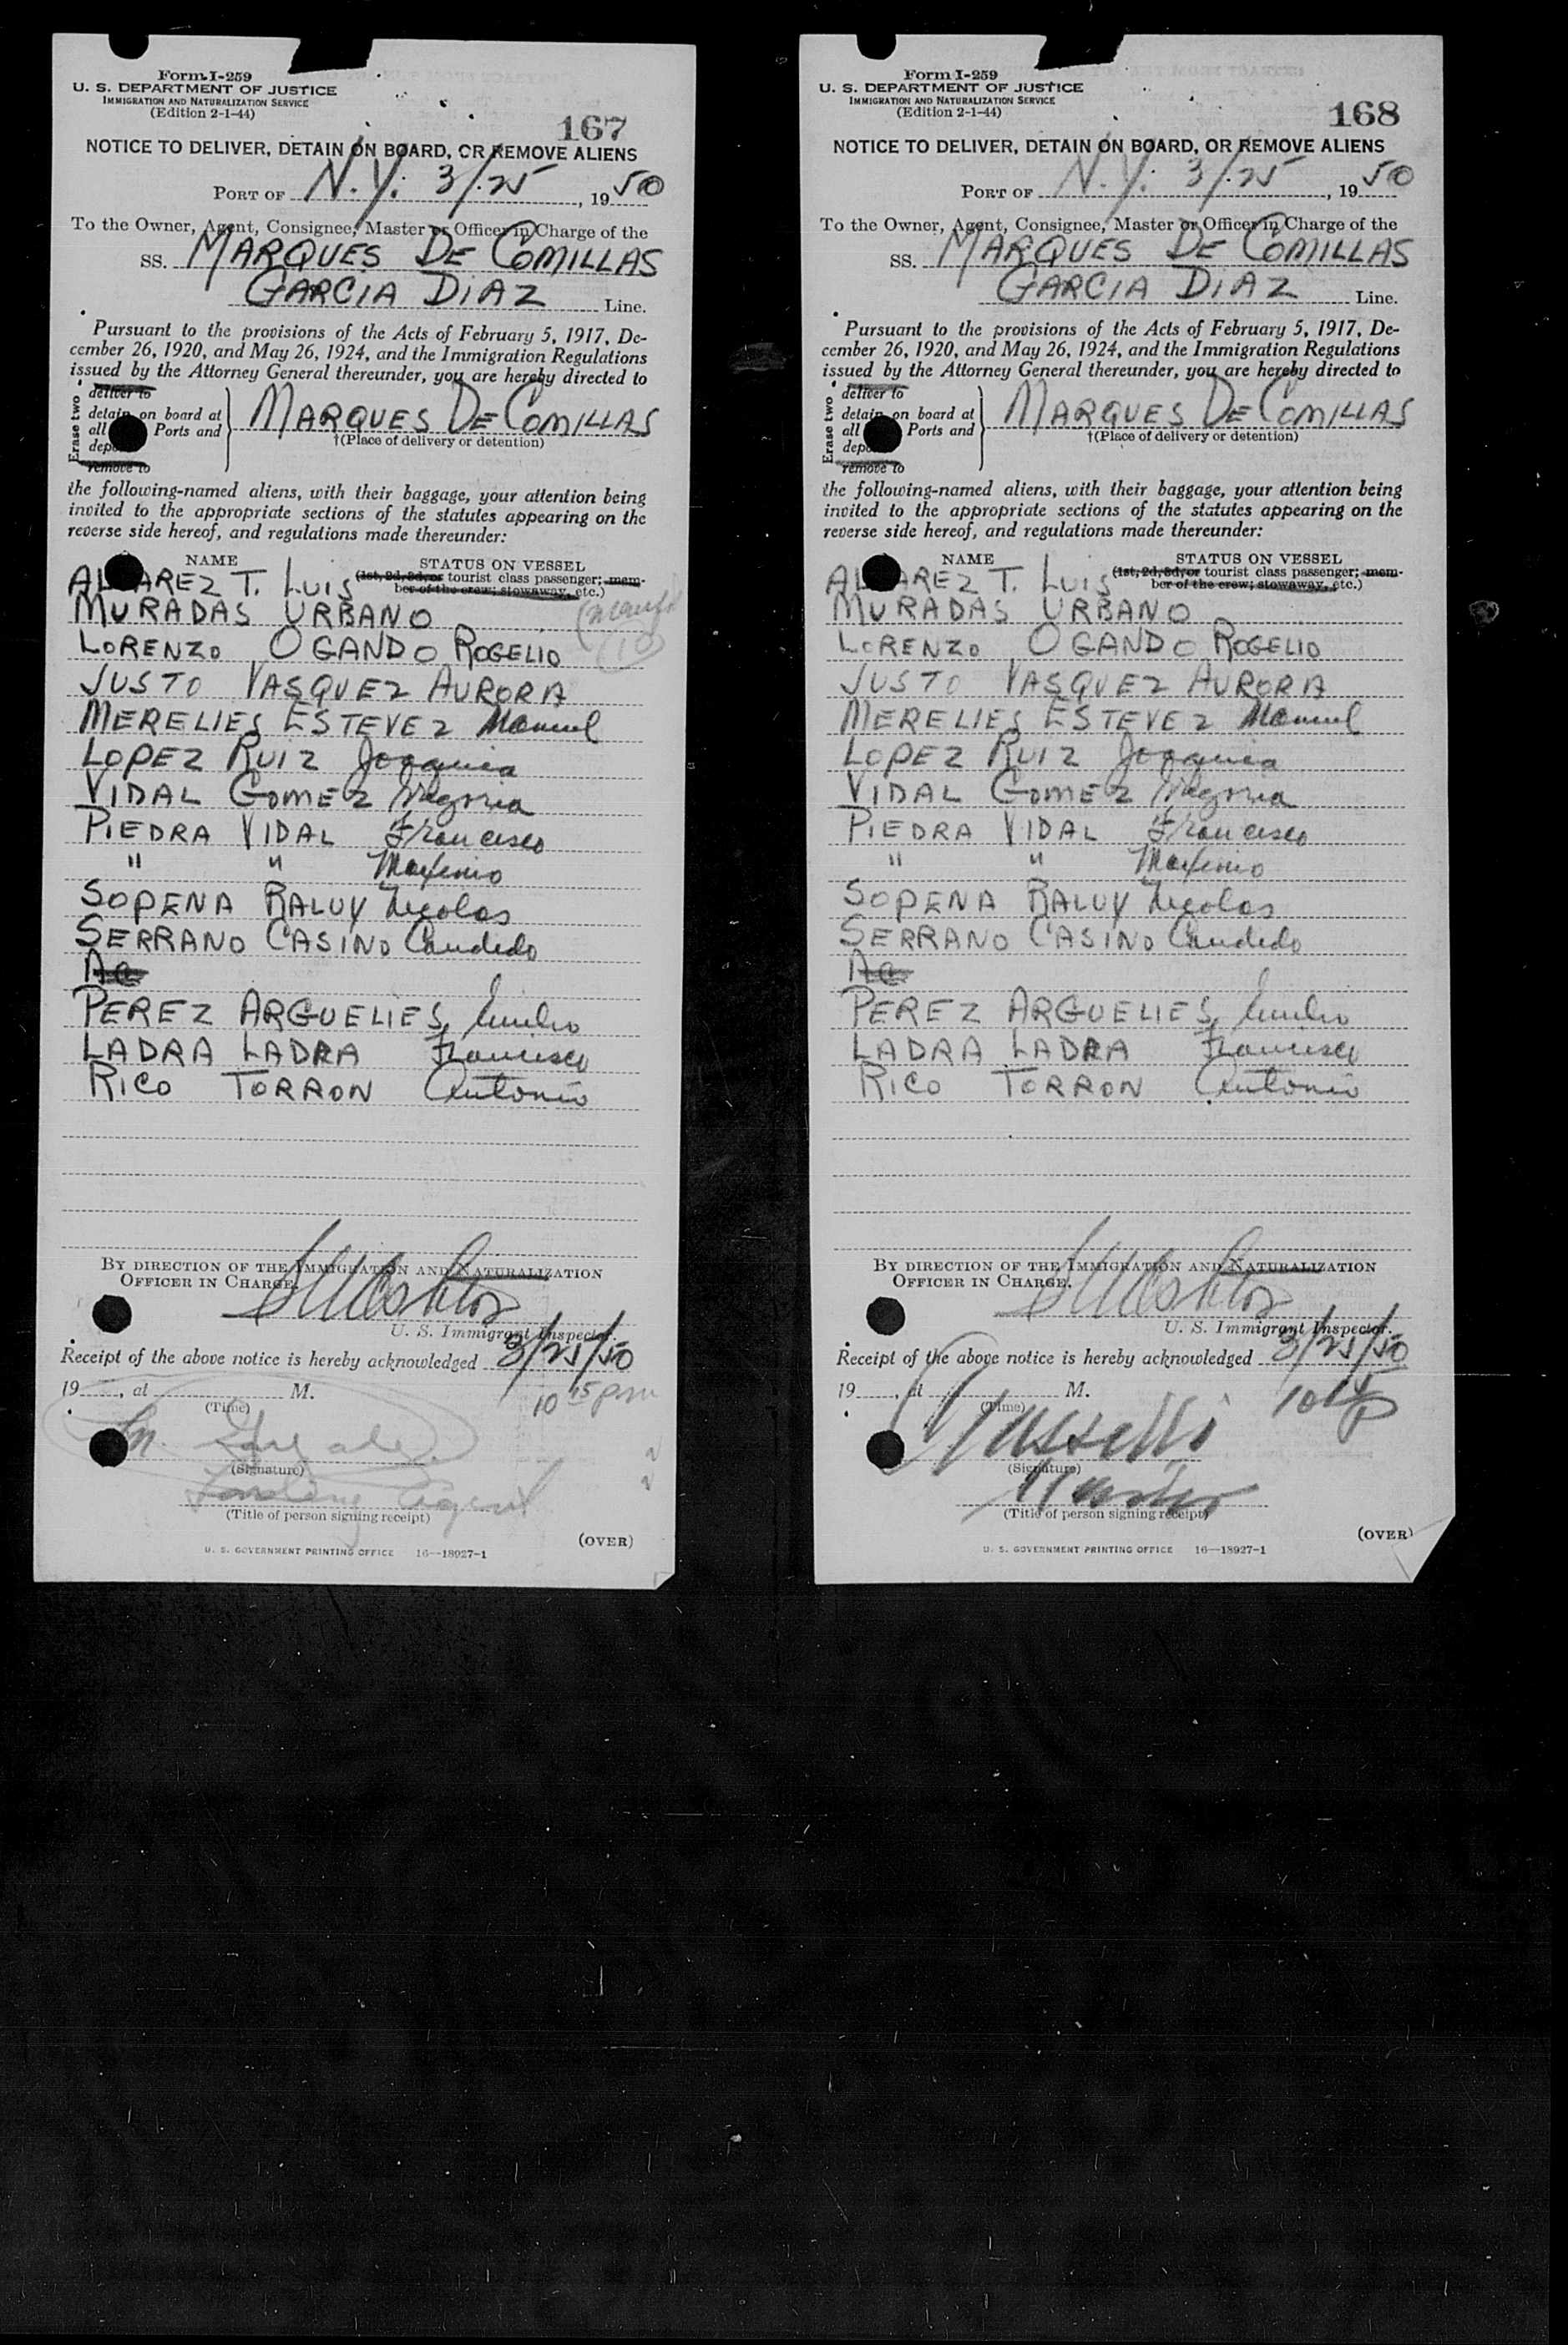 Form I-259
U. S. DEPARTMENT OF JUSTICE
IMMIGRATION AND NATURALIZATION SERVICE
(Edition 2-1-44)
167
NOTICE TO DELIVER, DETAIN ON BOARD, OR REMOVE ALIENS
PORT OF N.Y. 3/25, 1950
To the Owner, Agent, Consignee, Master or Officer in Charge of the
SS. MARQUES DE COMILLAS
GARCIA DIAZ Line.
Pursuant to the provisions of the Acts of February 5, 1917, De-
cember 26, 1920, and May 26, 1924, and the Immigration Regulations
issued by the Attorney General thereunder, you are hereby directed to
Erase two
deliver to
detain on board at
all Ports and
remove to
MARQUES DE COMILLAS
†(Place of delivery or detention)
the following-named aliens, with their baggage, your attention being
invited to the appropriate sections of the statutes appearing on the
reverse side hereof, and regulations made thereunder:
NAME
STATUS ON VESSEL
(1st, 2d, 3d, or tourist class passenger; mem-
ber of the crew; stowaway, etc.)
ALVAREZ T. LUIS
MURADAS URBANO
LORENZO OGANDO ROGELIO
(10)
JUSTO VASQUEZ AURORA
MERELIES ESTEVEZ Manuel
LOPEZ RUIZ Joaquina
VIDAL GOMEZ
PIEDRA VIDAL Francisco
" " Maximio
SOPENA RALUY Nicolas
SERRANO CASINO Candido
PEREZ ARGUELIES, Emilio
LADRA LADRA Francisco
RICO TORRON Antonio
BY DIRECTION OF THE IMMIGRATION AND NATURALIZATION
OFFICER IN CHARGE.
U. S. Immigrant Inspector.
Receipt of the above notice is hereby acknowledged 3/25/50
19____, at ________ M. 10 15 pm
(Time)
(Signature)
Landing Agent
(Title of person signing receipt)
(OVER)
U. S. GOVERNMENT PRINTING OFFICE 16—18927-1
Form I-259
U. S. DEPARTMENT OF JUSTICE
IMMIGRATION AND NATURALIZATION SERVICE
(Edition 2-1-44)
168
NOTICE TO DELIVER, DETAIN ON BOARD, OR REMOVE ALIENS
PORT OF N.Y. 3/25, 1950
To the Owner, Agent, Consignee, Master or Officer in Charge of the
SS. MARQUES DE COMILLAS
GARCIA DIAZ Line.
Pursuant to the provisions of the Acts of February 5, 1917, De-
cember 26, 1920, and May 26, 1924, and the Immigration Regulations
issued by the Attorney General thereunder, you are hereby directed to
Erase two
deliver to
detain on board at
all Ports and
remove to
MARQUES DE COMILLAS
†(Place of delivery or detention)
the following-named aliens, with their baggage, your attention being
invited to the appropriate sections of the statutes appearing on the
reverse side hereof, and regulations made thereunder:
NAME
STATUS ON VESSEL
(1st, 2d, 3d, or tourist class passenger; mem-
ber of the crew; stowaway, etc.)
ALVAREZ T. LUIS
MURADAS URBANO
LORENZO OGANDO ROGELIO
JUSTO VASQUEZ AURORA
MERELIES ESTEVEZ Manuel
LOPEZ RUIZ Joaquina
VIDAL GOMEZ
PIEDRA VIDAL Francisco
" " Maximio
SOPENA RALUY Nicolas
SERRANO CASINO Candido
PEREZ ARGUELIES, Emilio
LADRA LADRA Francisco
RICO TORRON Antonio
BY DIRECTION OF THE IMMIGRATION AND NATURALIZATION
OFFICER IN CHARGE.
U. S. Immigrant Inspector.
Receipt of the above notice is hereby acknowledged 3/25/50
19____, at ________ M. 10 15 P
(Time)
(Signature)
Master
(Title of person signing receipt)
(OVER)
U. S. GOVERNMENT PRINTING OFFICE 16—18927-1